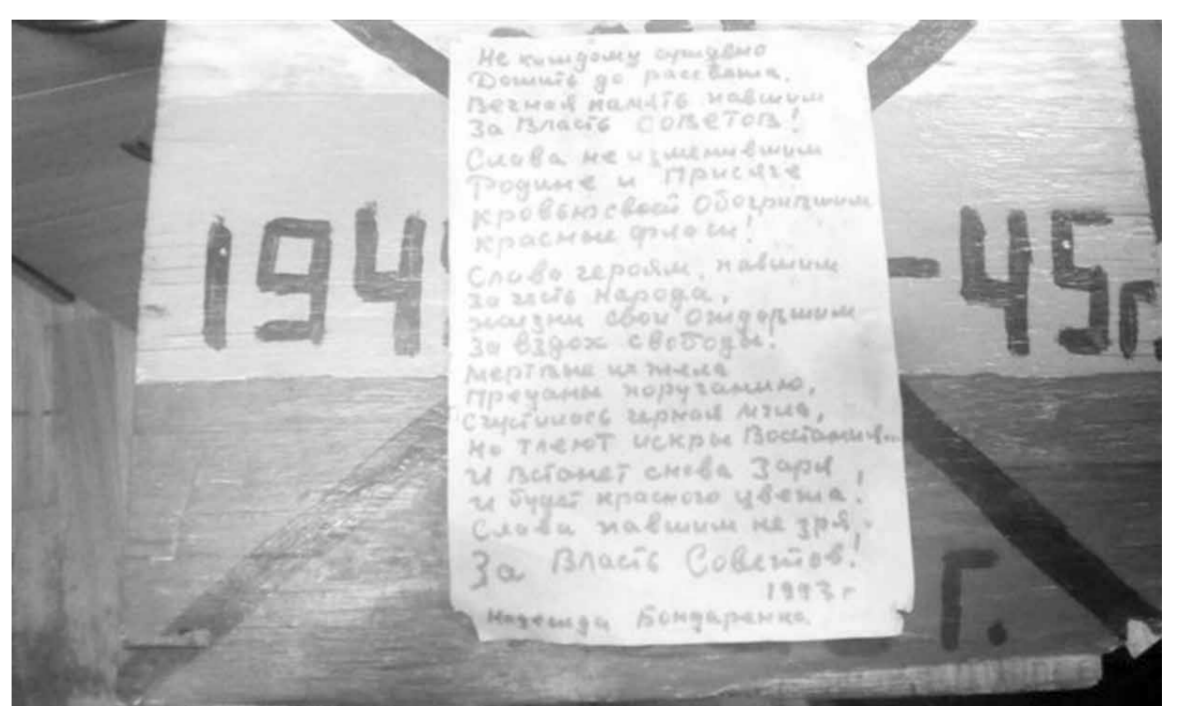 Не каждому суждено
Дожить до рассвета.
Вечная память павшим
За Власть СОВЕТОВ!
Слава не изменившим
Родине и Присяге
Кровью своей Обогрившим
красные флаги!
Слава героям, павшим
За честь народа,
жизни свои Отдавшим
За вздох свободы!
Мертвые их тела
Преданы поруганию,
Сгустилась черная мгла,
Но тлеют искры Восстания...
И Встанет снова Заря,
И будет красного цвета.
Слава павшим не зря,
За Власть Советов!
1993 г
Надежда Бондаренко.
194
-45г.
г.